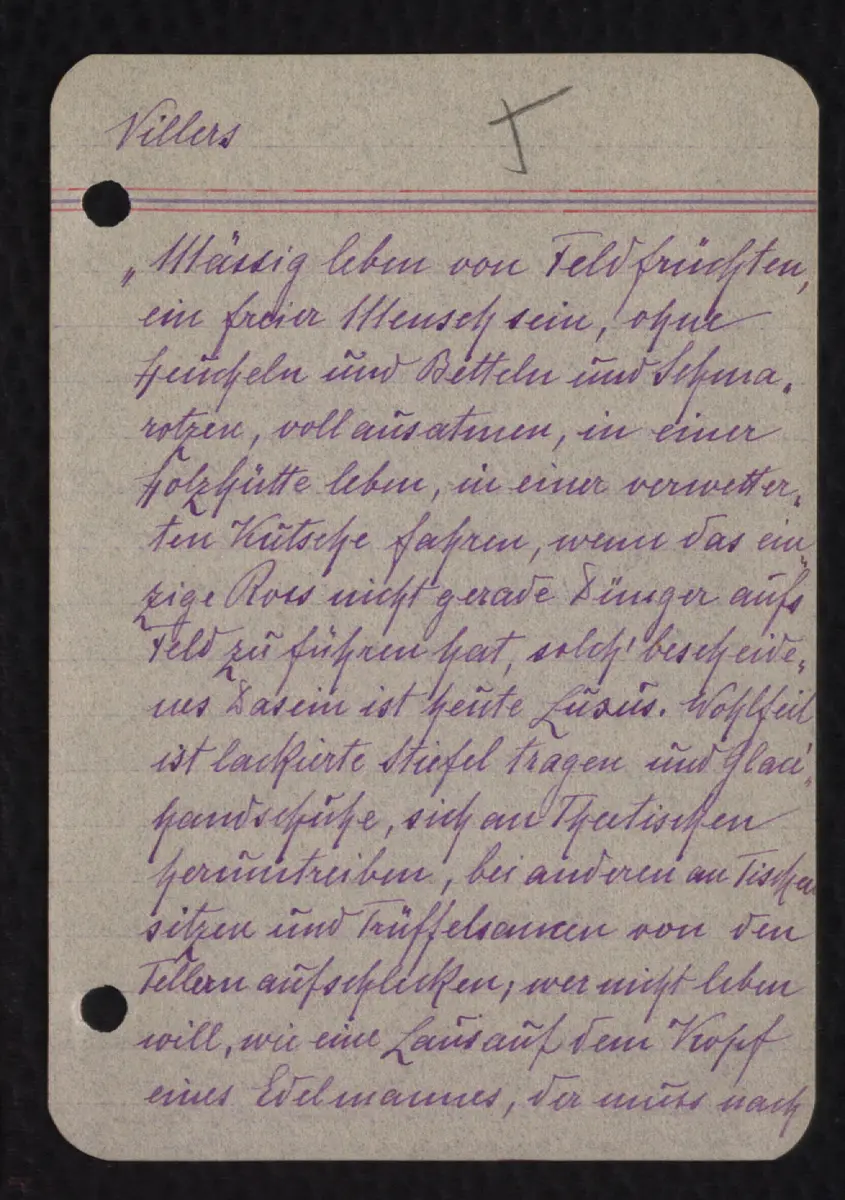 Villers
„Mässig leben von Feldfrüchten,
ein freier Mensch sein, ohne
Heucheln und Betteln und Schma„
rotzen, voll ausatmen, in einer
Holzhütte leben, in einer verwetter„
ten Kutsche fahren, wenn das ein„
zige Ross nicht gerade Dünger aufs
Feld zu führen hat, solch' bescheide„
nes Dasein ist heute Luxus. Wohlfeil
ist lackierte Stiefel tragen und Glacé„
handschuhe, sich an Theetischen
herumtreiben, bei anderen an Tischen
sitzen und Trüffelsaucen von den
Tellern aufschlecken; wer nicht leben
will, wie eine Laus auf dem Kopf
eines Edelmannes, der muss nach